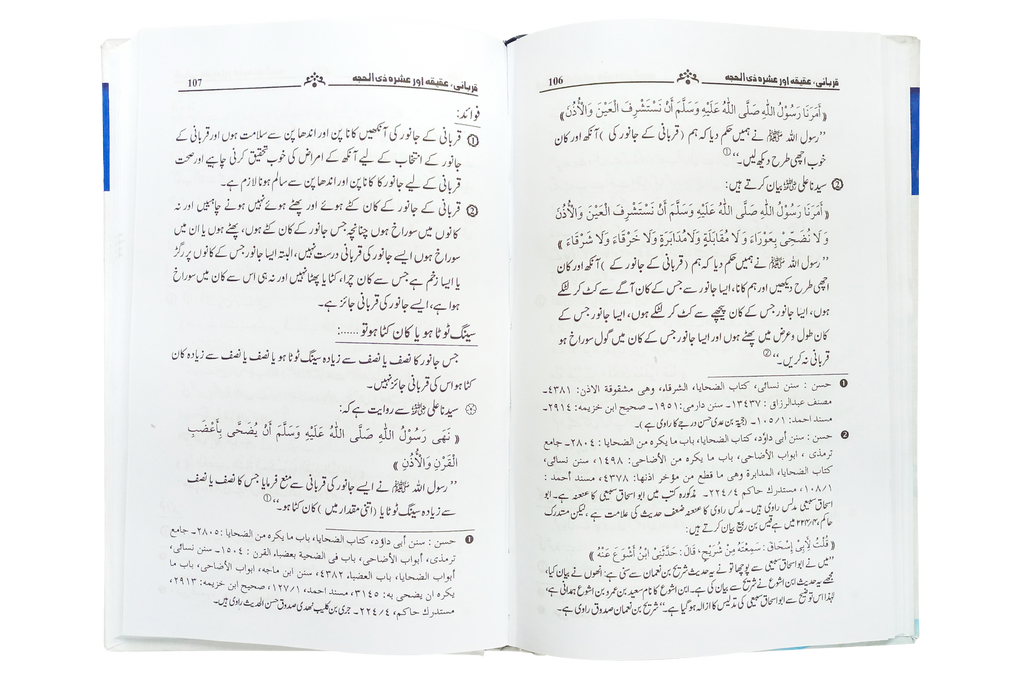 106 قربانی، عقیقہ اور عشرہ ذی الحجہ
﴿ أَمَرَنَا رَسُوْلُ اللهِ صَلَّى اللهُ عَلَيْهِ وَسَلَّمَ أَنْ نَسْتَشْرِفَ الْعَيْنَ وَالْأُذُنَ ﴾
’’رسول اللہ ﷺ نے ہمیں حکم دیا کہ ہم (قربانی کے جانور کی) آنکھ اور کان
خوب اچھی طرح دیکھ لیں۔‘‘①
② سیدنا علی رضی اللہ عنہ بیان کرتے ہیں:
﴿ أَمَرَنَا رَسُوْلُ اللهِ صَلَّى اللهُ عَلَيْهِ وَسَلَّمَ أَنْ نَسْتَشْرِفَ الْعَيْنَ وَالْأُذُنَ
وَلَا نُضَحِّيْ بِعَوْرَاءَ وَلَا مُقَابَلَةٍ وَلَا مُدَابَرَةٍ وَلَا خَرْقَاءَ وَلَا شَرْقَاءَ ﴾
’’رسول اللہ ﷺ نے ہمیں حکم دیا کہ ہم (قربانی کے جانور کے) آنکھ اور کان
اچھی طرح دیکھیں اور ہم کانا، ایسا جانور سے جس کے کان آگے سے کٹ کر لٹکے
ہوں، ایسا جانور جس کے کان پیچھے سے کٹ کر لٹکے ہوں، ایسا جانور جس کے
کان طول و عرض میں پھٹے ہوں اور ایسا جانور جس کے کان میں گول سوراخ ہو
قربانی نہ کریں۔‘‘②
❶ حسن : سنن نسائی، کتاب الضحایا، الشرقاء، وھی مشقوقة الاذن: ٤٣٨١۔
مصنف عبدالرزاق : ١٣٤٣٧۔ سنن دارمی: ١٩٥١۔ صحیح ابن خزیمه: ٢٩١٤۔
مسند احمد: ١/١٠٥۔ (حجیہ بن عدی حسن درجے کا راوی ہے)۔
❷ حسن : سنن أبی داؤد، کتاب الضحایا، باب ما یکره من الضحایا : ٢٨٠٤۔ جامع
ترمذی ، ابواب الأضاحی، باب ما یکره من الأضاحی: ١٤٩٨، سنن نسائی،
کتاب الضحایا، المدابرة وھی ما قطع من مؤخر اذنها: ٤٣٧٨، مسند أحمد :
١/١٠٨، مستدرك حاکم ٤/٢٢٤۔ مذکورہ کتب میں ابو اسحاق سبیعی کا عنعنہ ہے۔ ابو
اسحاق سبیعی مدلس راوی ہیں۔ مدلس راوی کا عنعنہ ضعف حدیث کی علامت ہے، لیکن مستدرک
حاکم ۴/۲۲۴ میں ہے قیس بن ربیع بیان کرتے ہیں:
﴿ قُلْتُ لِأَبِى إِسْحَاقَ : سَمِعْتَهُ مِنْ شُرَيْحٍ، قَالَ: حَدَّثَنِى ابْنُ أَشْوَعَ عَنْهُ ﴾
’’میں نے ابو اسحاق سبیعی سے پوچھا تو نے یہ حدیث شریح بن نعمان سے سنی ہے: انھوں نے بیان کیا،
مجھے یہ حدیث ابن اشوع نے شریح سے بیان کی ہے۔ ابن اشوع کا نام سعید بن عمرو بن اشوع ہمدانی ہے،
لہٰذا اس توضیح سے ابو اسحاق سبیعی کی تدلیس کا ازالہ ہو گیا ہے۔‘‘ شریح بن نعمان صدوق راوی ہے۔
107 قربانی، عقیقہ اور عشرہ ذی الحجہ
فوائد:
① قربانی کے جانور کی آنکھیں کانا پن اور اندھا پن سے سلامت ہوں اور قربانی کے
جانور کے انتخاب کے لیے آنکھ کے امراض کی خوب تحقیق کرنی چاہیے اور صحت
قربانی کے لیے جانور کا کانا پن اور اندھا پن سے سالم ہونا لازم ہے۔
② قربانی کے جانور کے کان کٹے ہوئے اور پھٹے ہوئے نہیں ہونے چاہئیں اور نہ
کانوں میں سوراخ ہوں چنانچہ جس جانور کے کان کٹے ہوں، پھٹے ہوں یا ان میں
سوراخ ہوں ایسے جانور کی قربانی درست نہیں، البتہ ایسا جانور جس کے کانوں پر رگڑ
یا ایسا زخم ہے جس سے کان چرا، کٹا یا پھٹا نہیں اور نہ ہی اس سے کان میں سوراخ
ہوا ہے، ایسے جانور کی قربانی جائز ہے۔
سینگ ٹوٹا ہو یا کان کٹا ہو تو ……:
جس جانور کا نصف یا نصف سے زیادہ سینگ ٹوٹا ہو یا نصف یا نصف سے زیادہ کان
کٹا ہو اس کی قربانی جائز نہیں۔
سیدنا علی رضی اللہ عنہ سے روایت ہے کہ:
﴿ نَهَى رَسُوْلُ اللهِ صَلَّى اللهُ عَلَيْهِ وَسَلَّمَ أَنْ يُضَحَّى بِأَعْضَبِ
الْقَرْنِ وَالْأُذُنِ ﴾
’’رسول اللہ ﷺ نے ایسے جانور کی قربانی سے منع فرمایا جس کا نصف یا نصف
سے زیادہ سینگ ٹوٹا یا (اتنی مقدار میں) کان کٹا ہو۔‘‘①
❶ حسن : سنن أبی داؤد، کتاب الضحایا، باب ما یکره من الضحایا: ٢٨٠٥۔ جامع
ترمذی، أبواب الأضاحی، باب فی الضحیة بعضباء القرن : ١٥٠٤۔ سنن نسائی،
أبواب الضحایا، باب العضباء ٤٣٨٢، سنن ابن ماجه، ابواب الأضاحی، باب ما
یکره ان یضحی به: ٣١٤٥، مسند احمد، ١/١٢٧، صحیح ابن خزیمه: ٢٩١٣،
مستدرك حاکم، ٤/٢٢٤۔ جری بن کلیب نھدی صدوق حسن الحدیث راوی ہیں۔